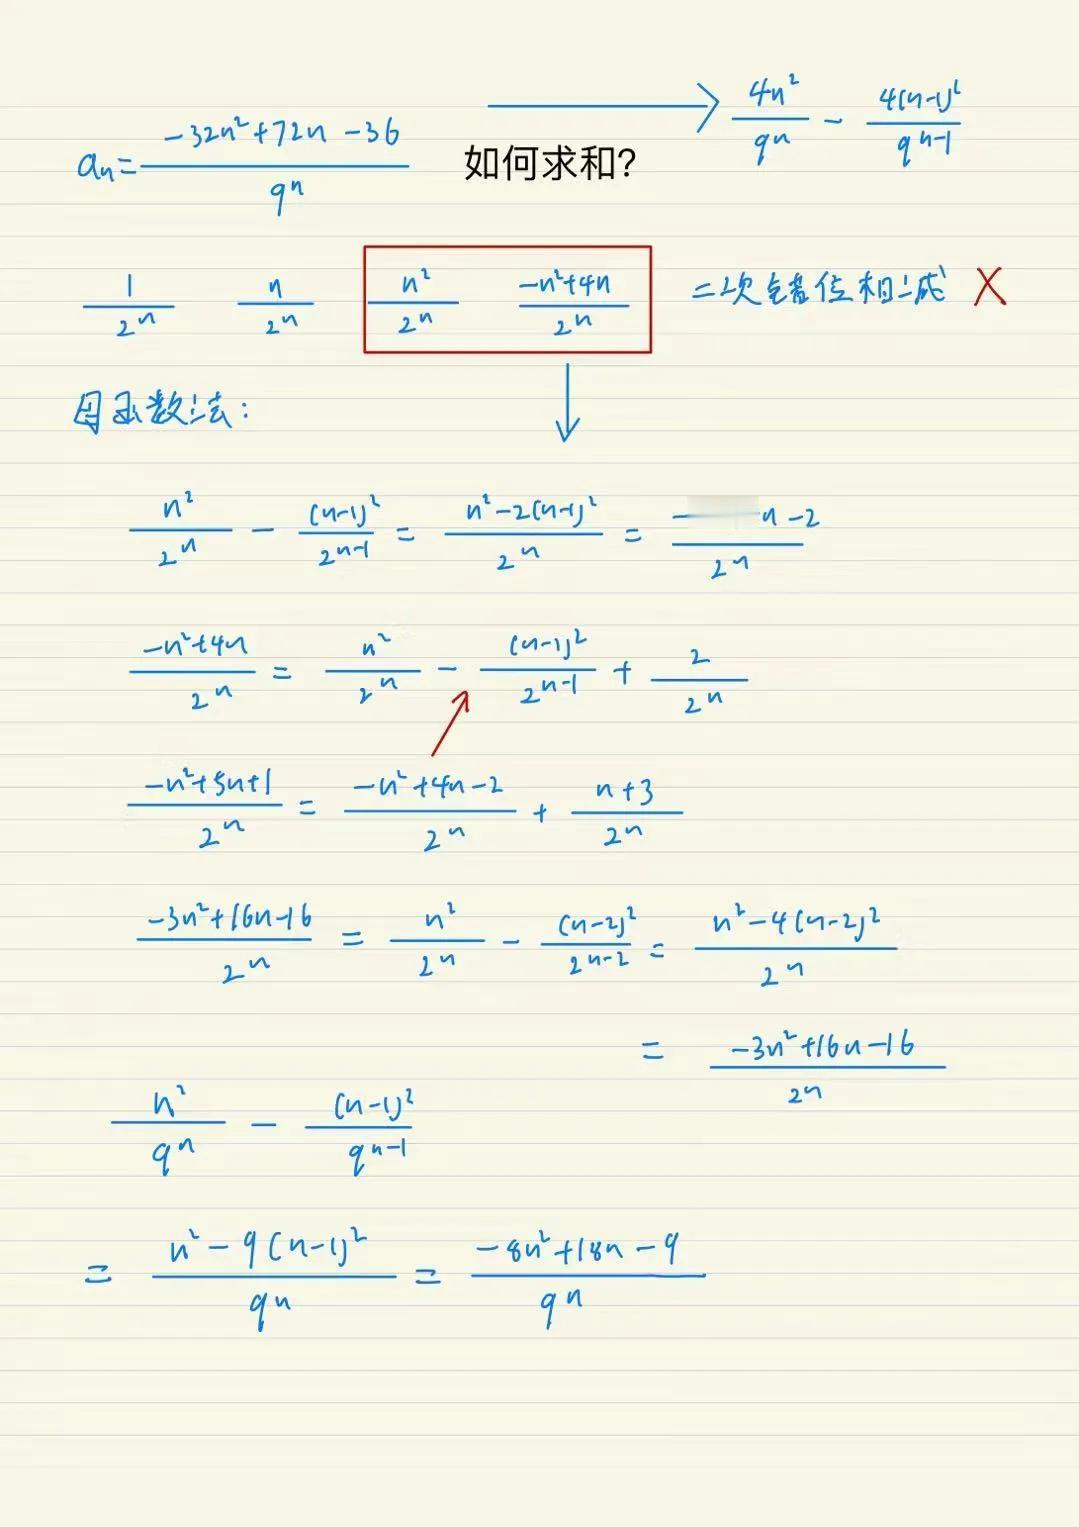 aₙ = (-32n²+72n-36)/9ⁿ 如何求和? → 4n²/9ⁿ - 4(n-1)²/9ⁿ⁻¹
1/2ⁿ n/2ⁿ n²/2ⁿ (-n²+4n)/2ⁿ 二次错位相减 X
母函数法:
n²/2ⁿ - (n-1)²/2ⁿ⁻¹ = (n²-2(n-1)²)/2ⁿ = (- n-2)/2ⁿ
(-n²+4n)/2ⁿ = n²/2ⁿ - (n-1)²/2ⁿ⁻¹ + 2/2ⁿ
(-n²+5n+1)/2ⁿ = (-n²+4n-2)/2ⁿ + (n+3)/2ⁿ
(-3n²+16n-16)/2ⁿ = n²/2ⁿ - (n-2)²/2ⁿ⁻² = (n²-4(n-2)²)/2ⁿ
= (-3n²+16n-16)/2ⁿ
n²/9ⁿ - (n-1)²/9ⁿ⁻¹
= (n²-9(n-1)²)/9ⁿ = (-8n²+18n-9)/9ⁿ